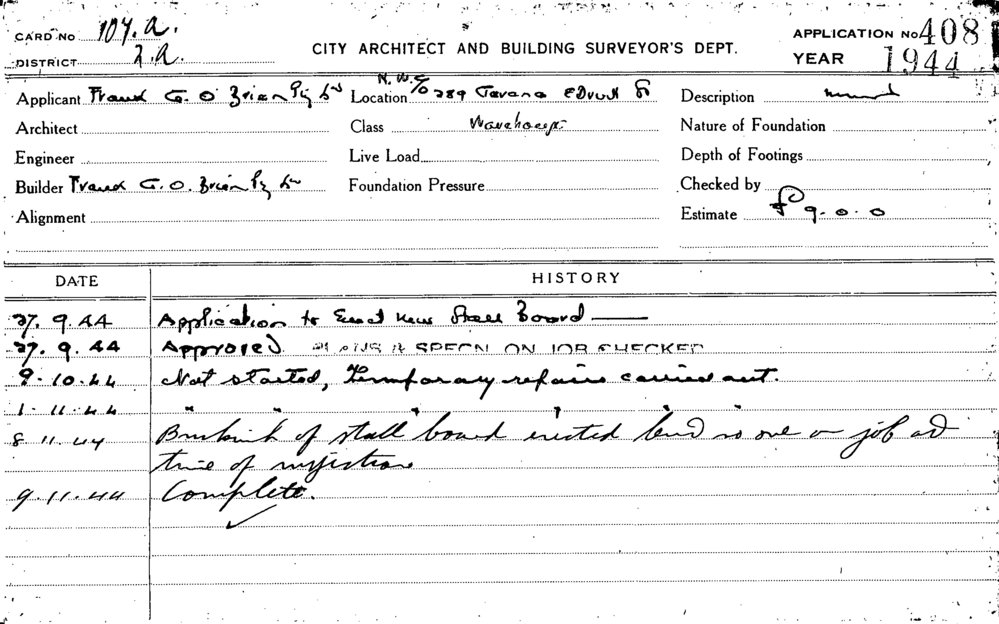 CARD No 107.a.
DISTRICT 2.a.
CITY ARCHITECT AND BUILDING SURVEYOR'S DEPT.
APPLICATION No 408
YEAR 1944
Applicant Frank G. O'Brien Pty Ld
Location N.W.C/o 289
Description
Architect
Class Warehouse
Nature of Foundation
Engineer
Live Load
Depth of Footings
Builder Frank G. O. Brien Pty Ld
Foundation Pressure
Checked by
Alignment
Estimate £9.0.0
DATE HISTORY
27.9.44 Application to Erect New Stall Board
27.9.44 Approved PLANS & SPECN ON JOB CHECKED
9.10.44 Not started, Temporary repairs carried out.
1.11.44 " " " " "
8.11.44 Brickwork of stall board erected but no one on job at
time of inspection
9.11.44 Complete. ✓